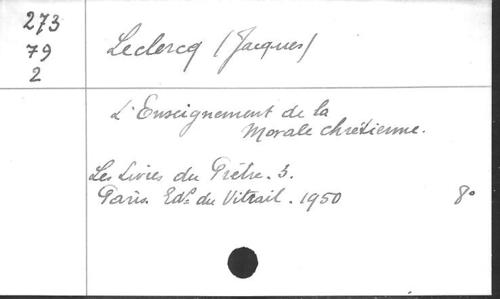 273
79
2
Leclercq (Jacques)
L'Enseignement de la
Morale chrétienne.
Les Livres du Prêtre. 3.
Paris. Edns du Vitrail. 1950 8°